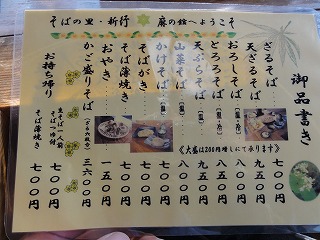 そばの里・新行　麻の館へようこそ
御品書き
ざるそば 七〇〇円
天ざるそば 九五〇円
おろしそば（温・冷） 八〇〇円
とろろそば（温・冷） 九五〇円
天ぷらそば（温） 九五〇円
山菜そば（温） 八〇〇円
かけそば（温） 七〇〇円
そばがき 七〇〇円
そば薄焼き 七〇〇円
おやき 一五〇円
かご盛りそば 三六〇〇円
《大盛は200円増しにて承ります》
お持ち帰り
生そば一人前 そばつゆ付 七〇〇円
そば薄焼き 七〇〇円